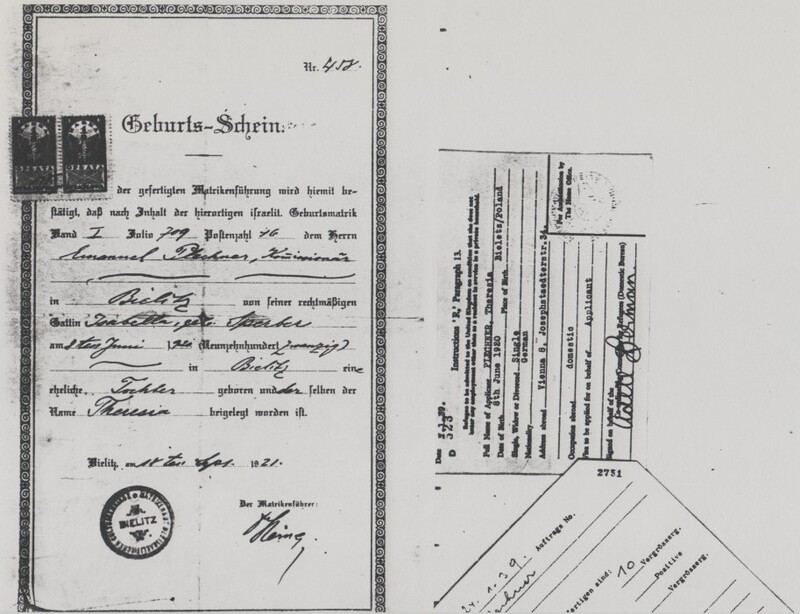 Nr. 458.
Geburts-Schein.
der gefertigten Matrikenführung wird hiemit be-
stätigt, daß nach Inhalt der hierortigen israelit. Geburtsmatrik
Band I Folio 709 Postenzahl 46 dem Herrn
Emanuel Plechner, Kommissionär
in Bielitz von seiner rechtmäßigen
Gattin Isabella, geb. Sperber
am 8ten Juni (Neunzehnhundertzwanzig)
in Bielitz eine
eheliche Tochter geboren und der selben der
Name Theresia beigelegt worden ist.
Bielitz, am 18ten Sept. 1921.
Der Matrikenführer:
BIELITZ
Date
D 323
Instructions 'R,' Paragraph 13.
Refugee to be admitted to the United Kingdom on condition that she does not
enter any employment other than as a resident in service in a private household.
Full Name of Applicant PLECHNER, Theresia
Date of Birth 8th June 1920 Place of Birth Bielets/Poland
Single, Widow or Divorced Single
Nationality German
Address abroad Vienna 8, Josephstaedterstr. 34
Occupation abroad domestic
Visa to be applied for on behalf of Applicant
Signed on behalf of the
(Domestic Bureau)
For Authorisation by
The Home Office.
2751
24.1.39.
Auftrags No.
fertigen sind: 10 Vergrösserg.
Positive
Vergrösserg.